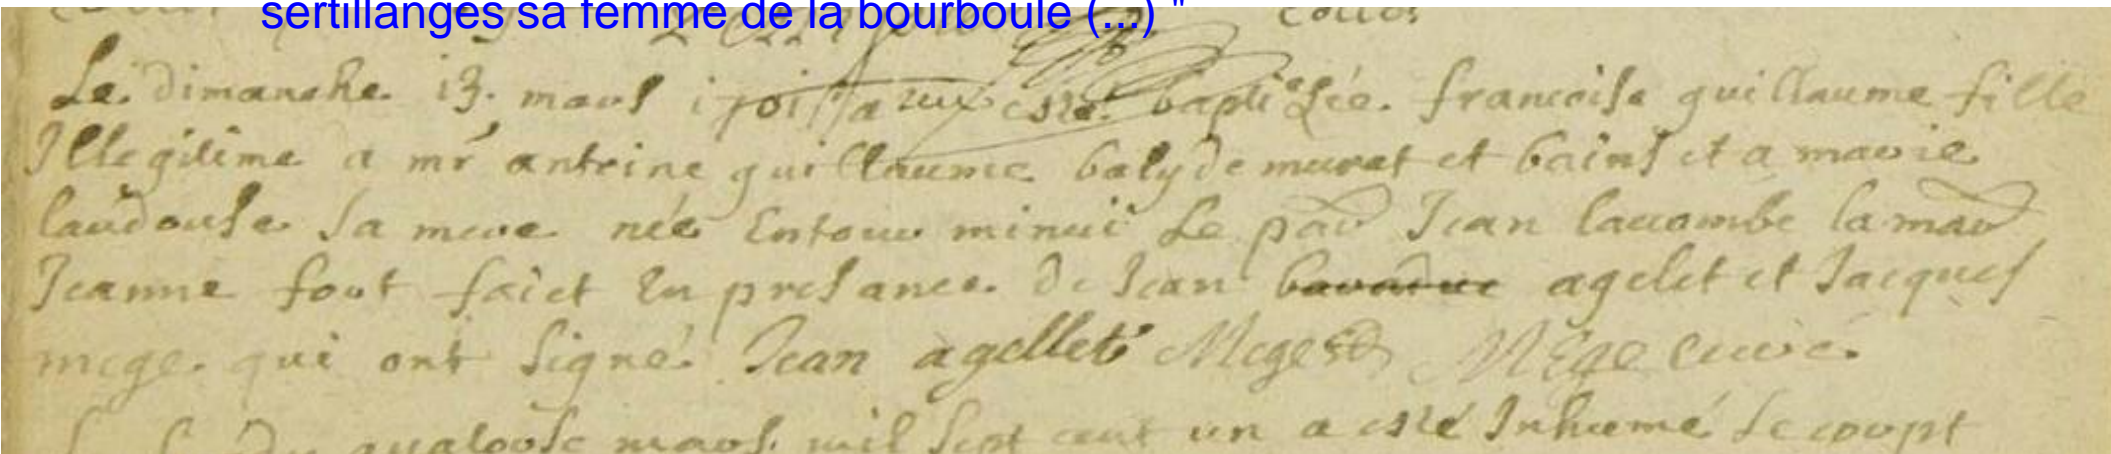 sertillanges sa femme de la bourboule (...) "
Le dimanche 13. mars 1701 a esté baptisée. francoise guillaume fille
Illegitime a mr antoine guillaume baly de murat et bains et a marie
laudouse sa mere née Entour minui Le par Jean lacombe la mar
Jeanne fort faict En presance. de Jean agelet et Jacques
mege. qui ont signé. Jean agellet Mege Mege curé.
du quatorse mars. mil sept cent un a esté Inhumé le corpt